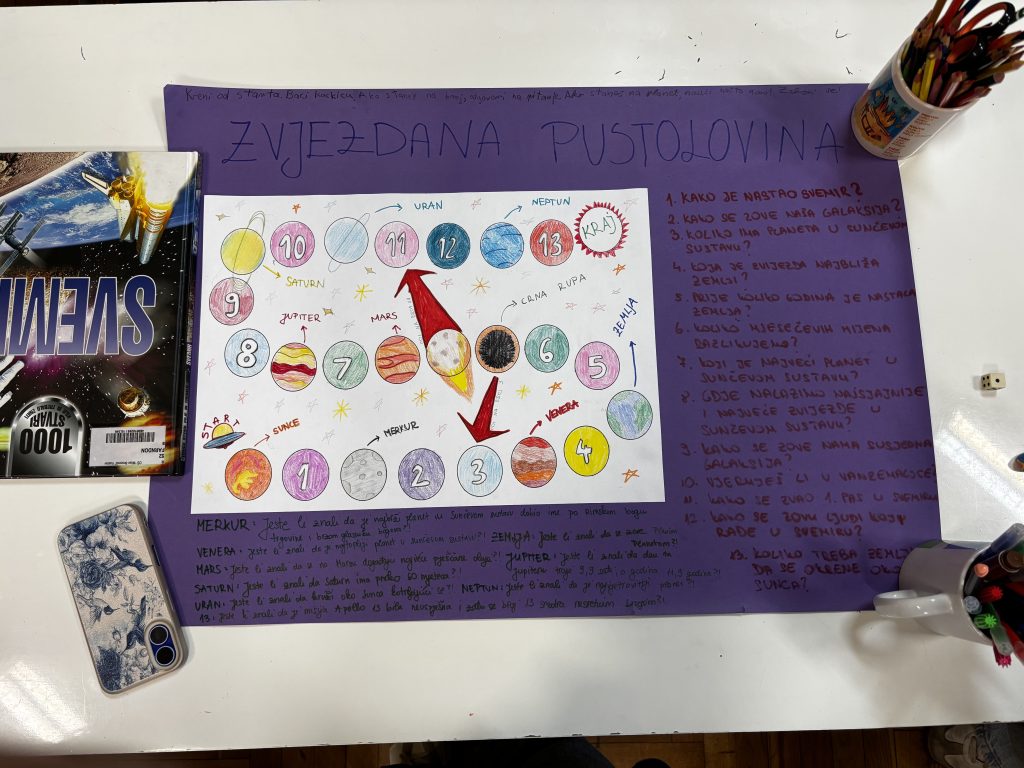 Kreni od starta. Baci kockicu. Ako staneš na broj, odgovori na pitanje. Ako staneš na planet, nauči nešto novo.
ZVJEZDANA PUSTOLOVINA
URAN
NEPTUN
10
11
12
13
KRAJ
SATURN
9
CRNA RUPA
ZEMLJA
JUPITER
MARS
8
7
6
5
START
SUNCE
MERKUR
VENERA
1
2
3
4
1. KAKO JE NASTAO SVEMIR?
2. KAKO SE ZOVE NAŠA GALAKSIJA?
3. KOLIKO IMA PLANETA U SUNČEVOM
SUSTAVU?
4. KOJA JE ZVIJEZDA NAJBLIŽA
ZEMLJI?
5. PRIJE KOLIKO GODINA JE NASTALA
ZEMLJA?
6. KOLIKO MJESEČEVIH MIJENA
RAZLIKUJEMO?
7. KOJI JE NAJVEĆI PLANET U
SUNČEVOM SUSTAVU?
8. GDJE NALAZIMO NAJSJAJNIJE
I NAJVEĆE ZVIJEZDE U
SUNČEVOM SUSTAVU?
9. KAKO SE ZOVE NAMA SUSJEDNA
GALAKSIJA?
10. VJERUJEŠ LI U VANZEMALJCE?
11. KAKO SE ZVAO 1. PAS U SVEMIRU
12. KAKO SE ZOVU LJUDI KOJI
RADE U SVEMIRU?
13. KOLIKO TREBA ZEMLJI
DA SE OKRENE OKO
SUNCA?
MERKUR: Jeste li znali da je najbrži planet u Sunčevom sustavu dobio ime po Rimskom bogu
trgovine i
VENERA: Jeste li znali da je najtopliji planet u sunčevom sustavu?! ZEMLJA: Jeste li znali da se zove Plavim
planetom?!
MARS: Jeste li znali da se na Marsu događaju najveće pješčane oluje?! JUPITER: Jeste li znali da dan na
Jupiteru traje 9,9 h, a godina 11,9 godina?!
SATURN: Jeste li znali da Saturn ima preko 60 mjeseca?!
URAN: Jeste li znali da kruži oko Sunca kotrljajući se?! NEPTUN: Jeste li znali da je najvjetrovitiji planet?!
13: Jeste li znali da je misija Apollo 13 bila neuspješna i zato se broj 13 smatra nesretnim brojem?!
SVEMI
1000
STVARI